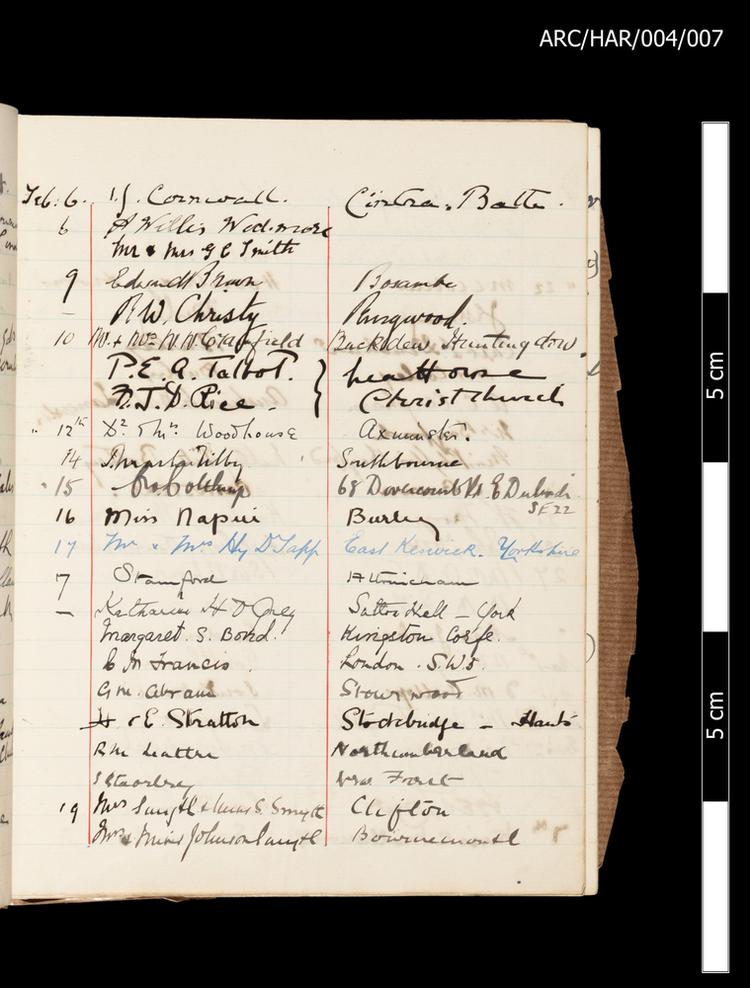 ARC/HAR/004/007
Feb: 6. Cornwall. Cintra. Battle.
6 A Willis Wedmore
Mr & Mrs G E Smith
9 Edward Brown Boscombe
– R. W. Christy Ringwood.
10 Buckden Huntingdon
P. E. A. Talbot. } Christchurch
Rice.
" 12th Dr. Thos. Woodhouse Axminster.
14 Southbourne
15 68 E Dulwich
SE 22
16 Miss Napier Burley
17 Mr & Mrs Hy D Tapp East Keswick. Yorkshire
7 Stamford Altrincham
– Katharine H D Grey Sutton Hall – York
Margaret. S. Bond. Kingston Corfe.
M Francis. London. S.W.5.
G.M. Abram Stourwood
H. & E. Stratton Stockbridge – Hants
R.M. Northumberland
New Forest
19 Mrs Smyth & Miss S. Smyth Clifton
Mrs & Miss Johnson Smyth Bournemouth
5 cm
5 cm